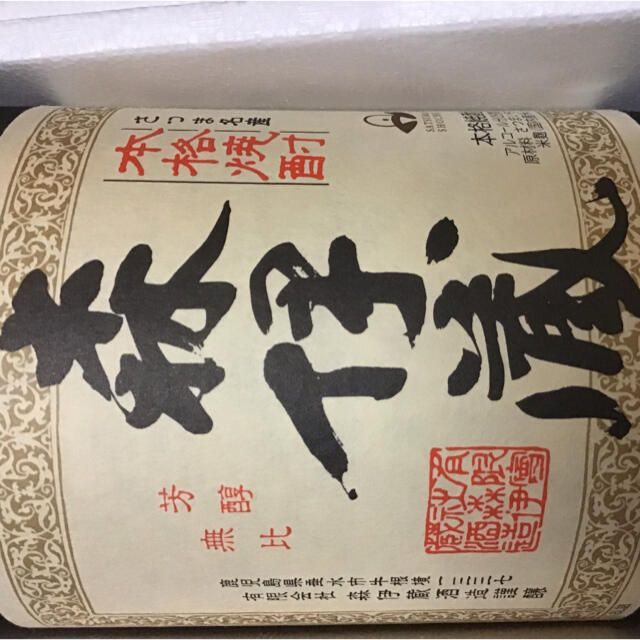 さつま名産
本格焼酎
森伊蔵
SATSUMA
SHOCHU
本格焼酎
アルコール
原材料 さつま
米麹
芳醇
無比
鹿児島県垂水市牛根境一三三七
有限会社 森伊蔵酒造謹醸